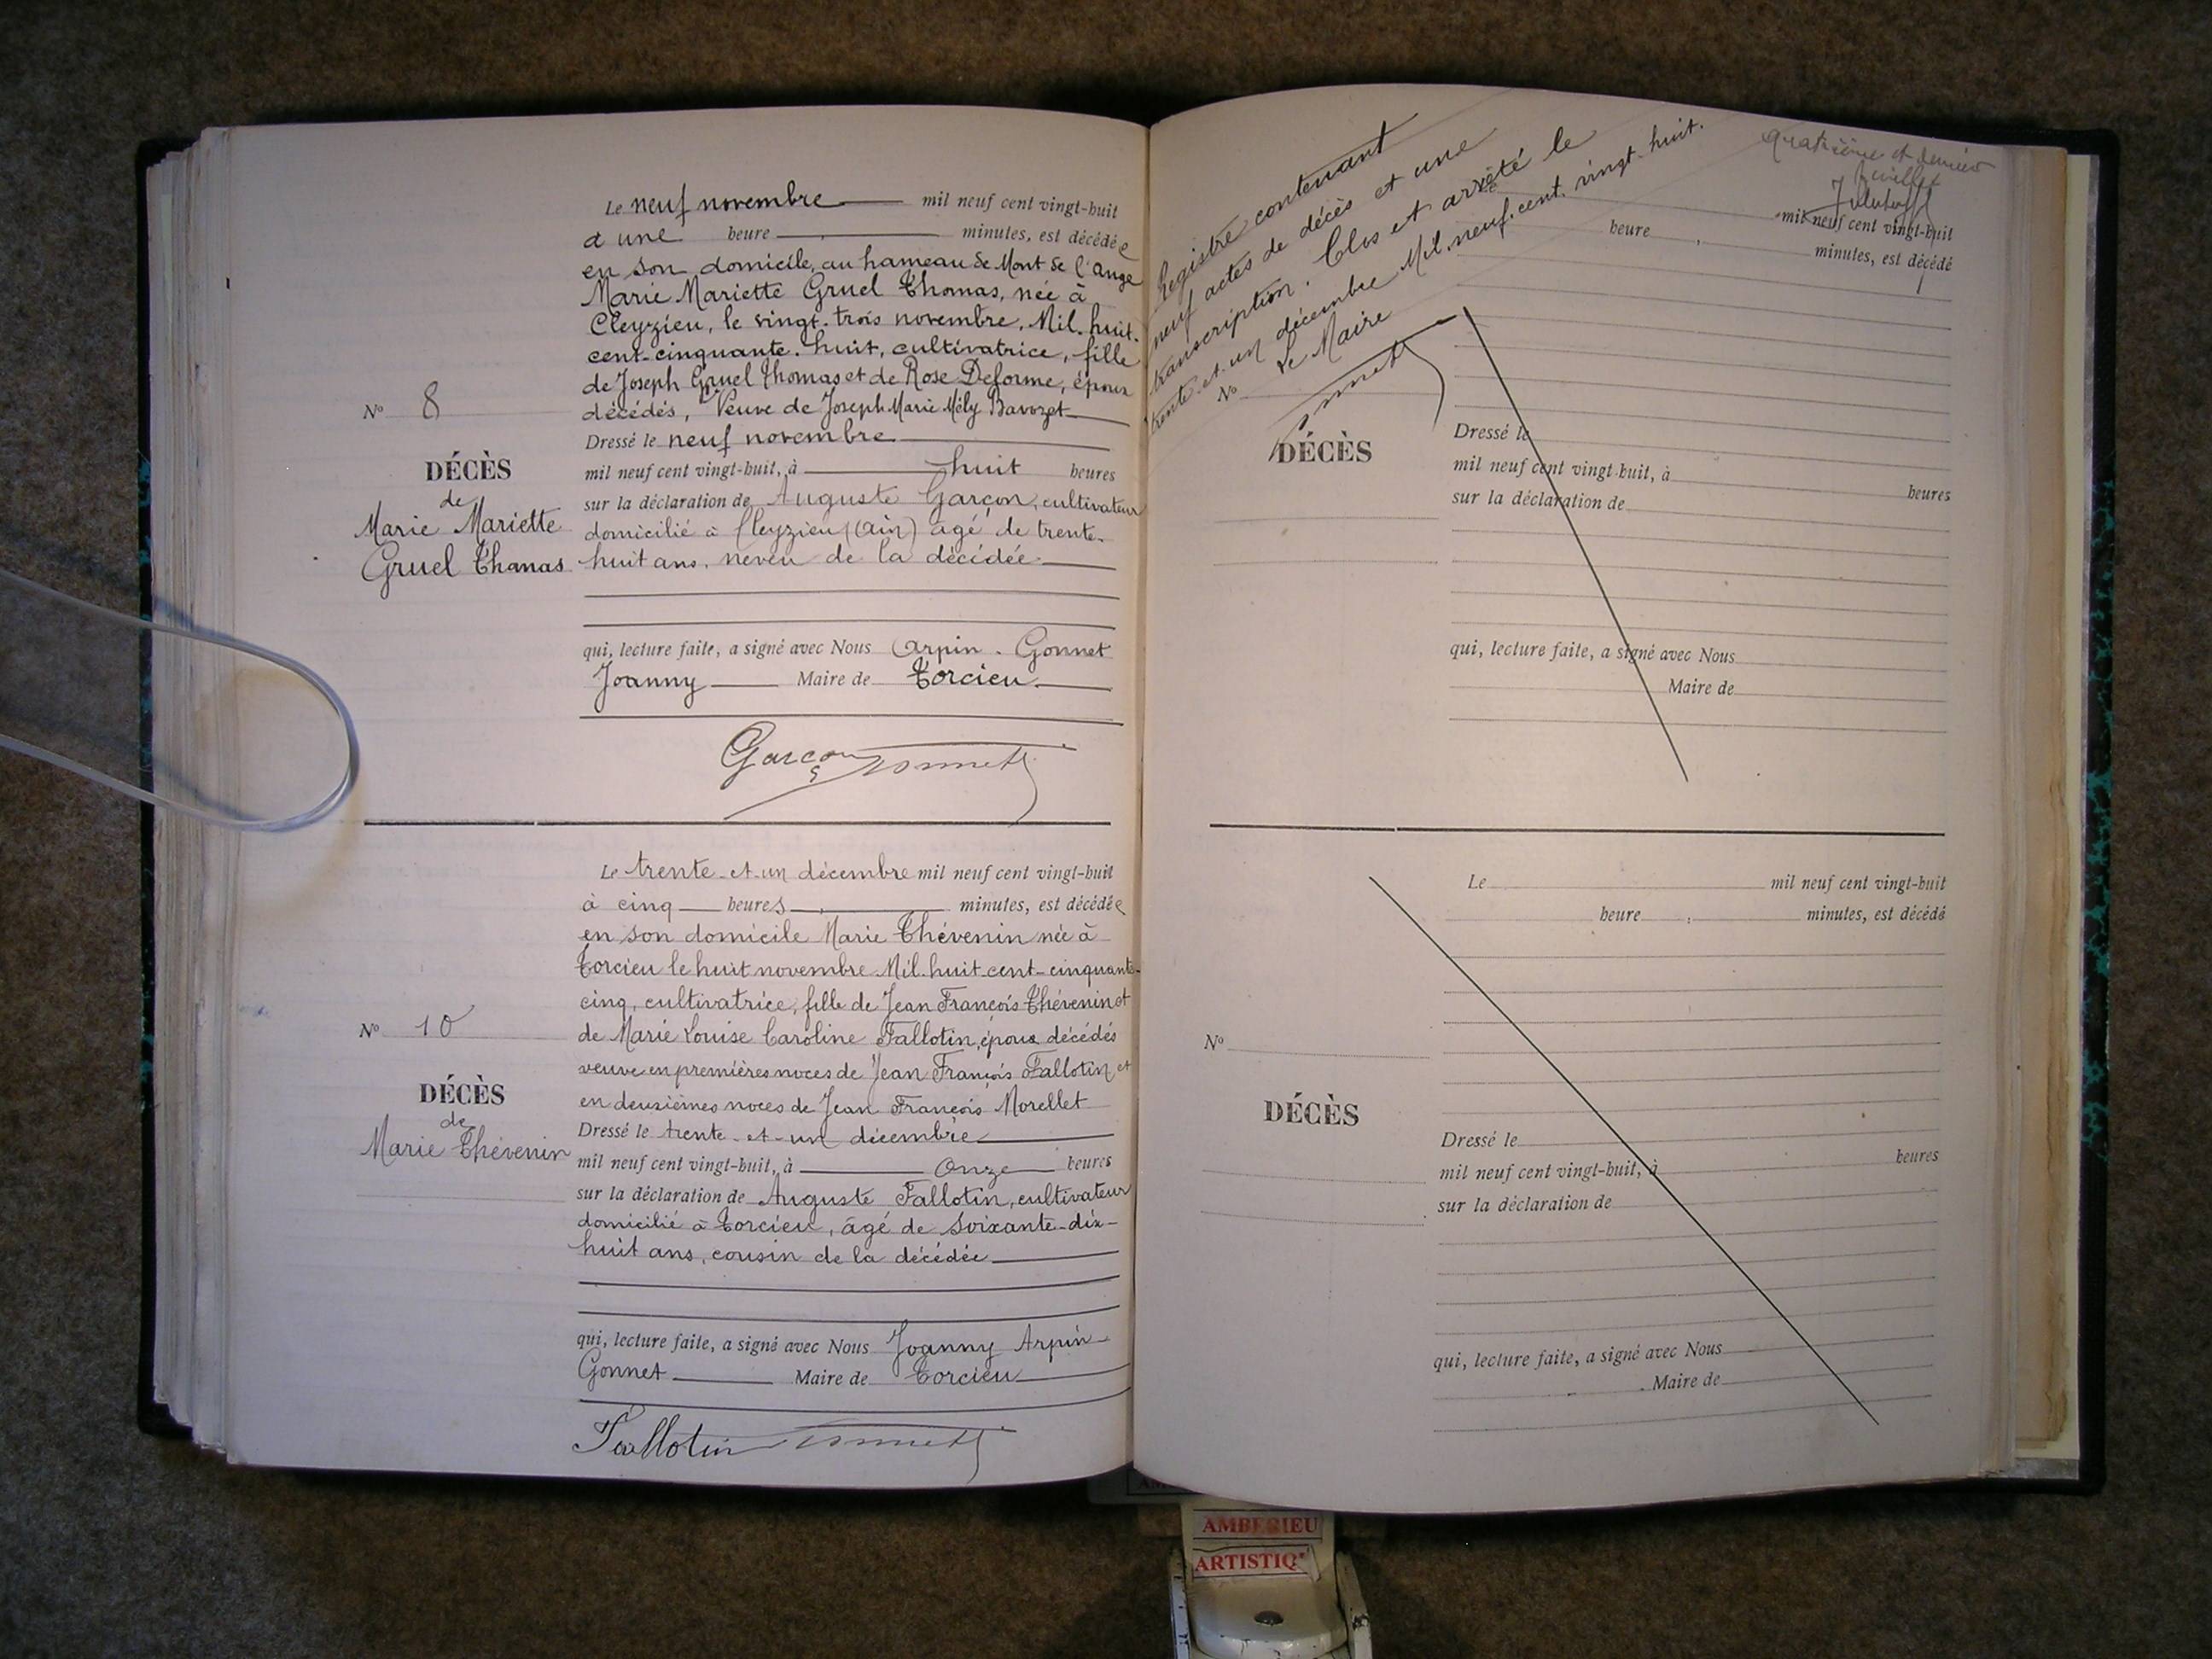 Le neuf novembre mil neuf cent vingt-huit
à une heure , minutes, est décédée
en son domicile, au hameau de Mont de l'ange
Marie Mariette Gruel Thomas, née à
Cleyzieu, le vingt-trois novembre, Mil-huit-
cent-cinquante-huit, cultivatrice, fille
de Joseph Gruel Thomas et de Rose Deforme, époux
décédés, Veuve de Joseph Marie Mély Bavozet
N° 8
Dressé le neuf novembre
DÉCÈS
mil neuf cent vingt-huit, à huit heures
de
sur la déclaration de Auguste Garçon, cultivateur
Marie Mariette
domicilié à Cleyzieu (Ain) âgé de trente-
Gruel Thomas
huit ans, neveu de la décédée
qui, lecture faite, a signé avec Nous Arpin - Gonnet
Joanny Maire de Torcieu
Garçon Gonnet
Le trente-et-un décembre mil neuf cent vingt-huit
à cinq heures , minutes, est décédée
en son domicile Marie Thévenin née à
Torcieu le huit novembre Mil-huit-cent-cinquante-
cinq, cultivatrice, fille de Jean François Thévenin et
N° 10
de Marie Louise Caroline Fallotin, époux décédés
veuve en premières noces de Jean François Fallotin et
DÉCÈS
en deuxièmes noces de Jean François Morellet
de
Dressé le trente-et-un décembre
Marie Thévenin
mil neuf cent vingt-huit, à Onze heures
sur la déclaration de Auguste Fallotin, cultivateur
domicilié à Torcieu, âgé de soixante-dix-
huit ans, cousin de la décédée
qui, lecture faite, a signé avec Nous Joanny Arpin
Gonnet Maire de Torcieu
Fallotin Gonnet
Registre contenant
neuf actes de décès et une
transcription. Clos et arrêté le
trente-et-un décembre Mil-neuf-cent-vingt-huit.
Le Maire
Gonnet
Quatrième et dernier
feuillet
Le mil neuf cent vingt-huit
heure , minutes, est décédé
N°
DÉCÈS
Dressé le
mil neuf cent vingt-huit, à heures
sur la déclaration de
qui, lecture faite, a signé avec Nous
Maire de
Le mil neuf cent vingt-huit
heure , minutes, est décédé
N°
DÉCÈS
Dressé le
mil neuf cent vingt-huit, à heures
sur la déclaration de
qui, lecture faite, a signé avec Nous
Maire de
AMBERIEU
ARTISTIQ'